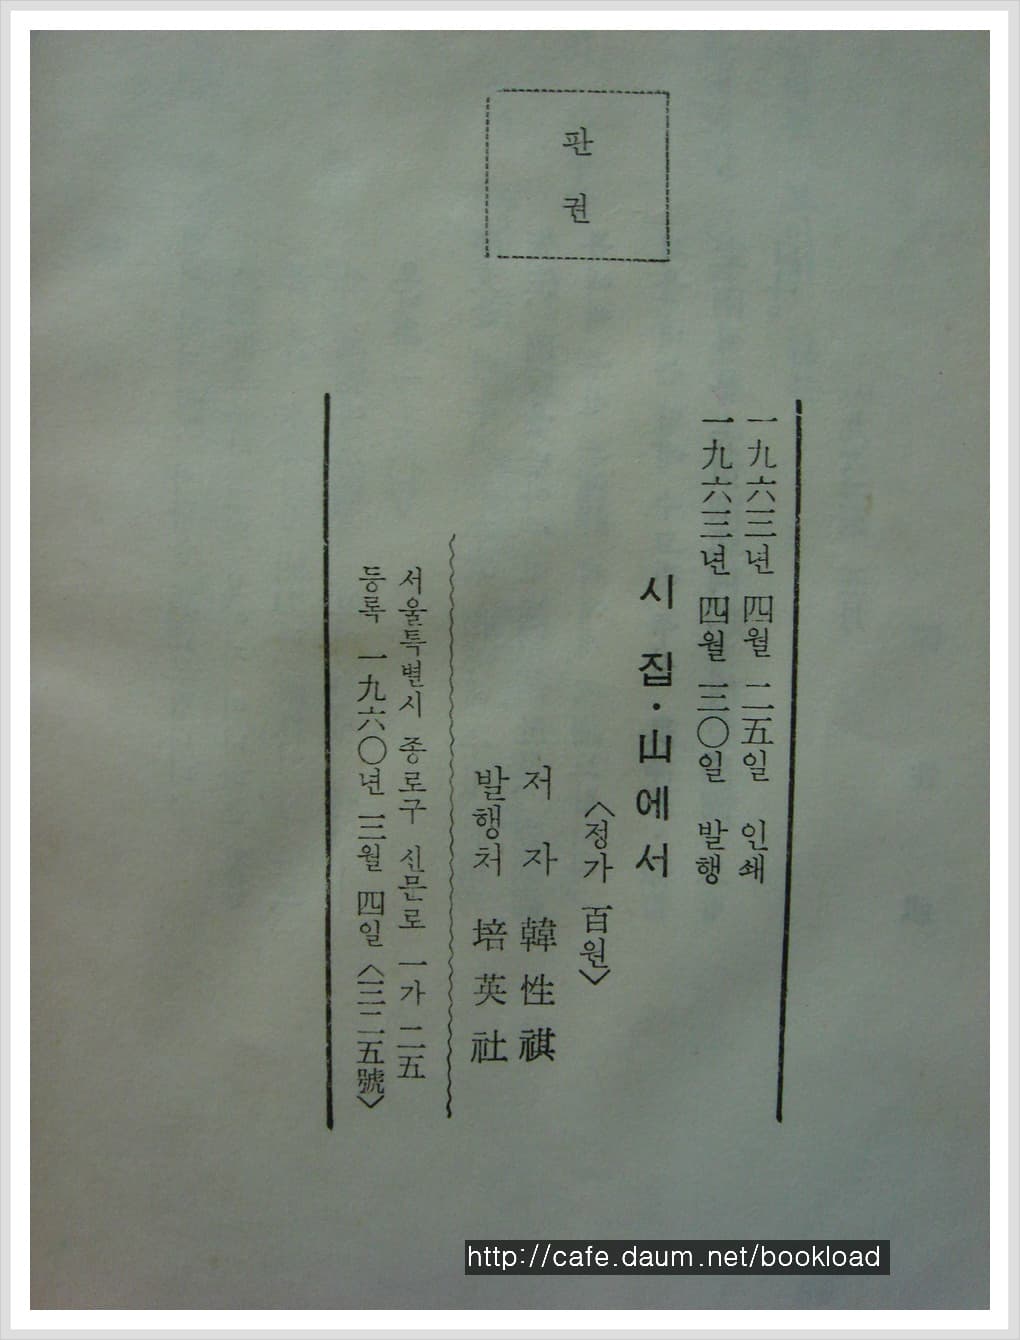 판권
一九六三년 四월 二五일 인쇄
一九六三년 四월 三〇일 발행
시집·山에서
〈정가 百원〉
저자 韓性祺
발행처 培英社
서울특별시 종로구 신문로 一가 二五
등록 一九六〇년 三월 四일 〈三二五號〉
http://cafe.daum.net/bookload